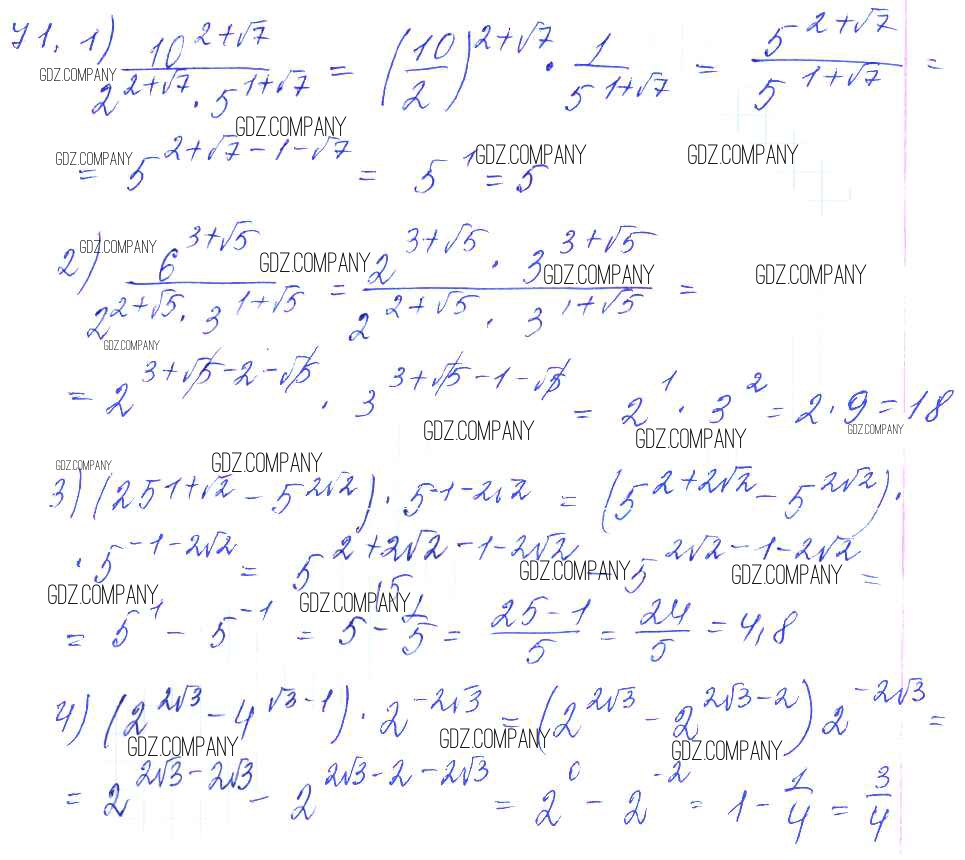 71. 1) 10^(2+√7) / (2^(2+√7) · 5^(1+√7)) = (10/2)^(2+√7) · 1/5^(1+√7) = 5^(2+√7) / 5^(1+√7) =
= 5^(2+√7-1-√7) = 5^1 = 5
2) 6^(3+√5) / (2^(2+√5) · 3^(1+√5)) = (2^(3+√5) · 3^(3+√5)) / (2^(2+√5) · 3^(1+√5)) =
= 2^(3+√5-2-√5) · 3^(3+√5-1-√5) = 2^1 · 3^2 = 2·9 = 18
3) (25^(1+√2) - 5^(2√2)) · 5^(-1-2√2) = (5^(2+2√2) - 5^(2√2)) ·
· 5^(-1-2√2) = 5^(2+2√2-1-2√2) - 5^(2√2-1-2√2) =
= 5^1 - 5^(-1) = 5 - 1/5 = (25-1)/5 = 24/5 = 4,8
4) (2^(2√3) - 4^(√3-1)) · 2^(-2√3) = (2^(2√3) - 2^(2√3-2)) 2^(-2√3) =
= 2^(2√3-2√3) - 2^(2√3-2-2√3) = 2^0 - 2^(-2) = 1 - 1/4 = 3/4
GDZ.COMPANY